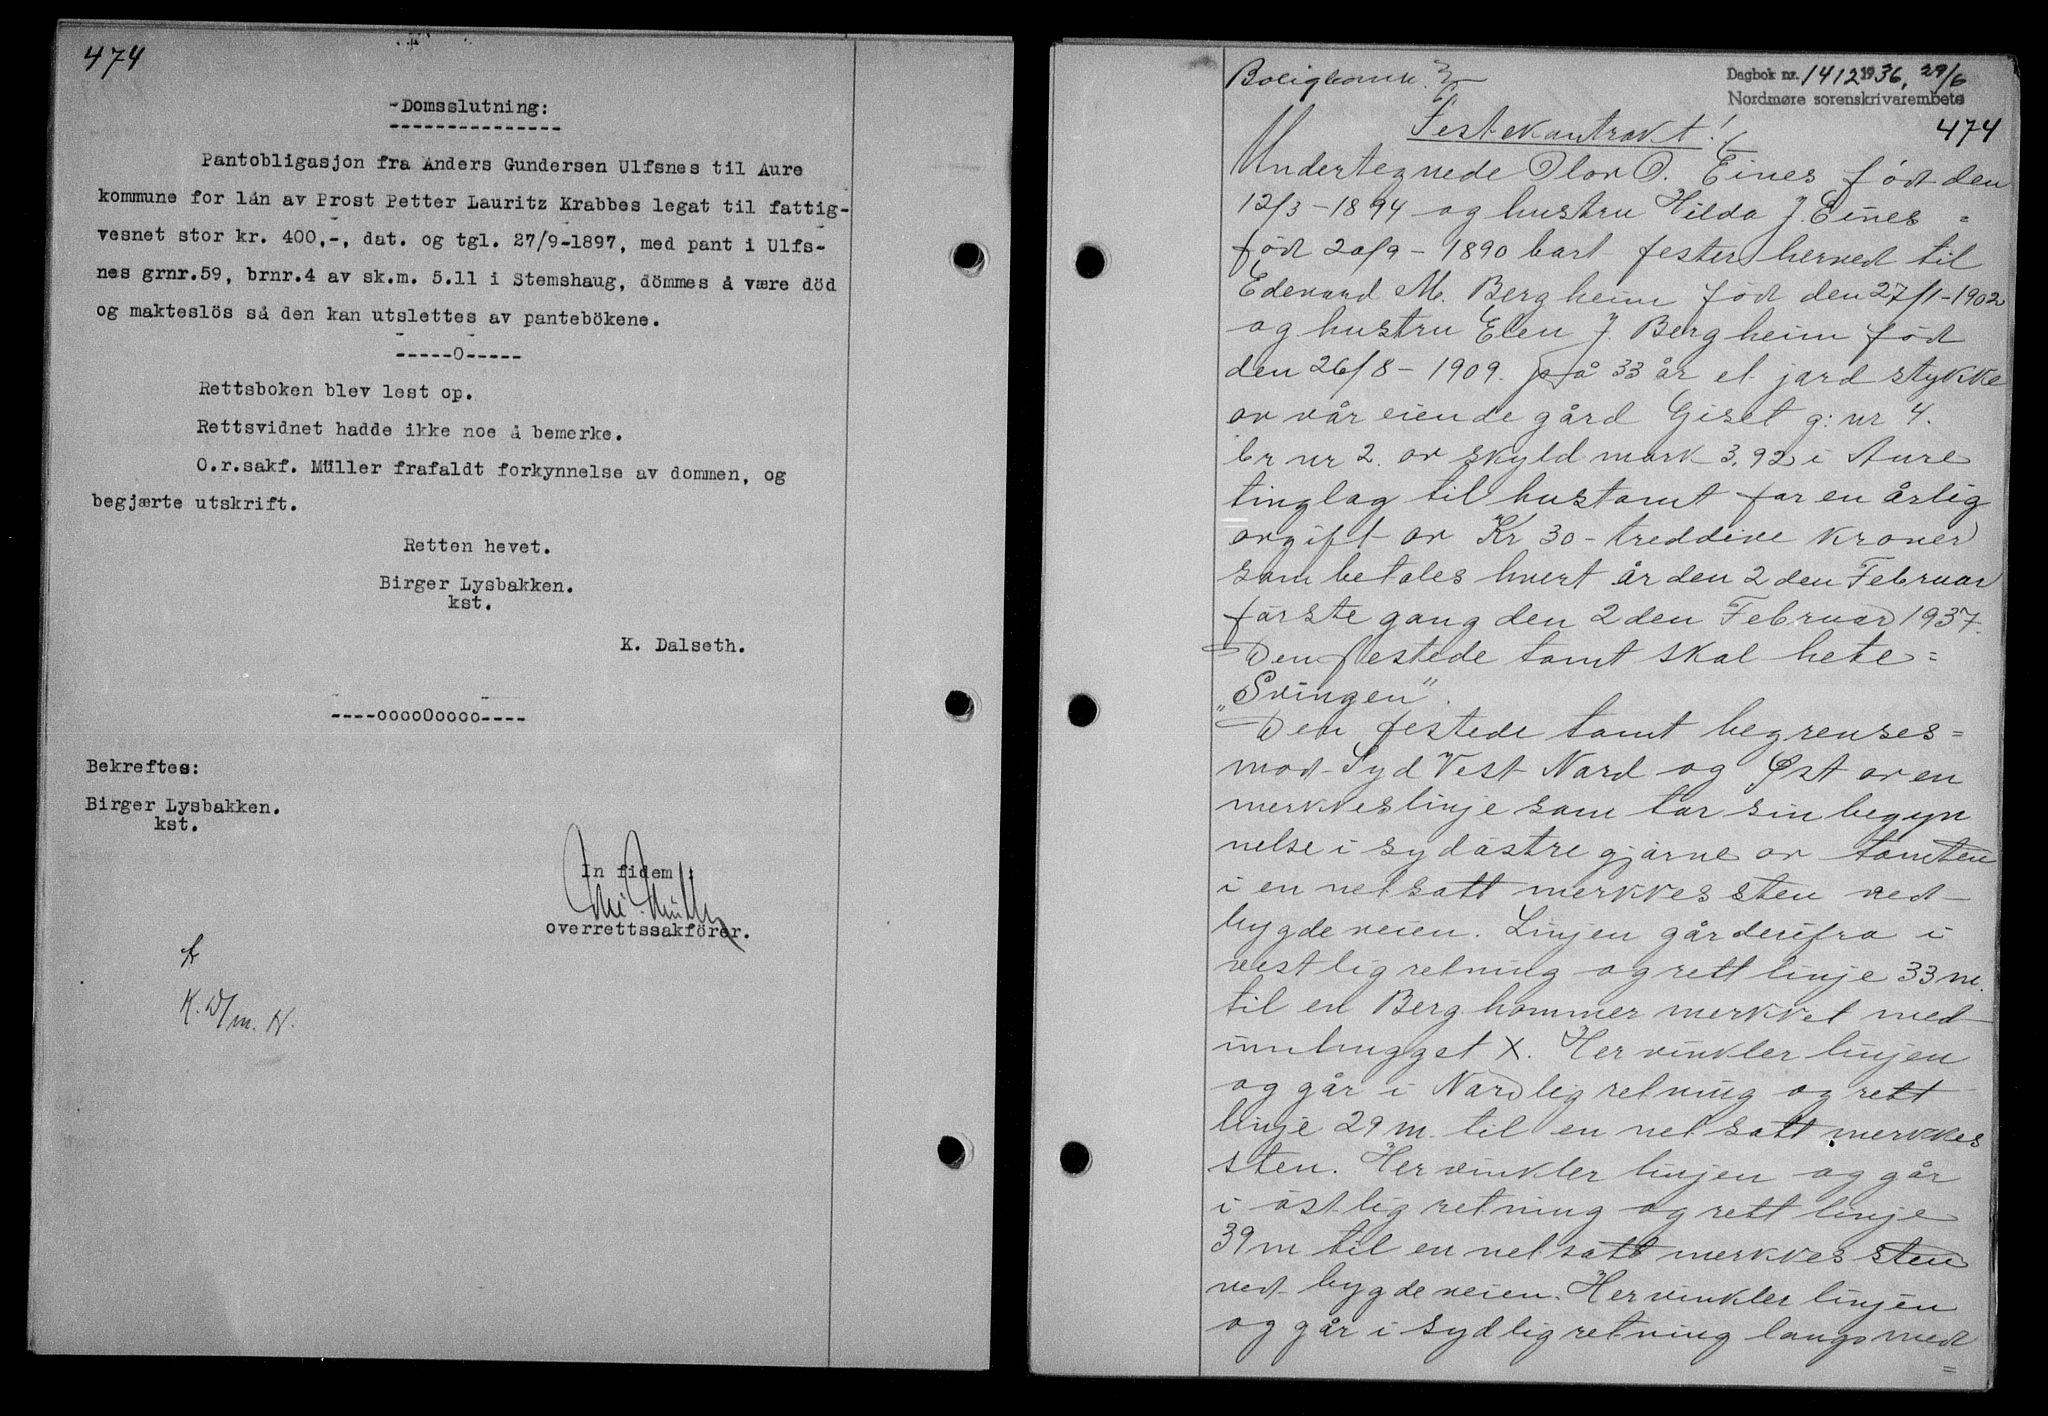 474
-Domsslutning:
Pantobligasjon fra Anders Gundersen Ulfsnes til Aure
kommune for lån av Prost Petter Lauritz Krabbes legat til fattig-
vesnet stor kr. 400,-, dat. og tgl. 27/9-1897, med pant i Ulfs-
nes grnr.59, brnr.4 av sk.m. 5.11 i Stemshaug, dömmes å være död
og makteslös så den kan utslettes av pantebökene.
-----O-----
Rettsboken blev lest op.
Rettsvidnet hadde ikke noe å bemerke.
O.r.sakf. Müller frafaldt forkynnelse av dommen, og
begjærte utskrift.
Retten hevet.
Birger Lysbakken.
kst.
K. Dalseth.
----ooooOoooo----
Bekreftes:
Birger Lysbakken.
kst.
In fidem
overrettssakförer.
K. D/m. N.
Dagbok nr. 1412 1936, 29/6
Nordmøre sorenskrivarembete
474
Festekontrakt!
Undertegnede Olov O. Eines født den
12/3-1894 og hustru Hilda J. Eines =
født 20/9-1890 bort fester herved til
Edevard M. Bergheim født den 27/1-1902
og hustru Elen J. Bergheim født
den 26/8-1909. på 33 år et jord stykke
av vår eiende gård Giset g: nr 4.
br nr 2. av skyld mark 3,92 i Aure
tinglag til hustomt for en årlig
avgift av Kr 30 - treddive kroner
som betales hvert år den 2 den Februar
første gang den 2 den Februar 1937.
Den festede tomt skal hete =
"Svingen".
Den festede tomt begrenses =
mod Syd Vest Nord og Øst av en
merkkeslinje som tar sin begyn
nelse i sydøstre gjørne av tomten
i en nelsatt merkkes sten ved
bygdeveien. Linjen går derifra i
vestlig retning og rett linje 33 m.
til en Berghammer merkket med
innhugget X. Her vinkler linjen
og går i Nordlig retning og rett
linje 29 m. til en nelsatt merkkes
sten. Her vinkler linjen og går
i østlig retning og rett linje
39 m til en nelsatt merkkes sten
ved bygdeveien. Her vinkler linjen
og går i sydlig retning langs med
=